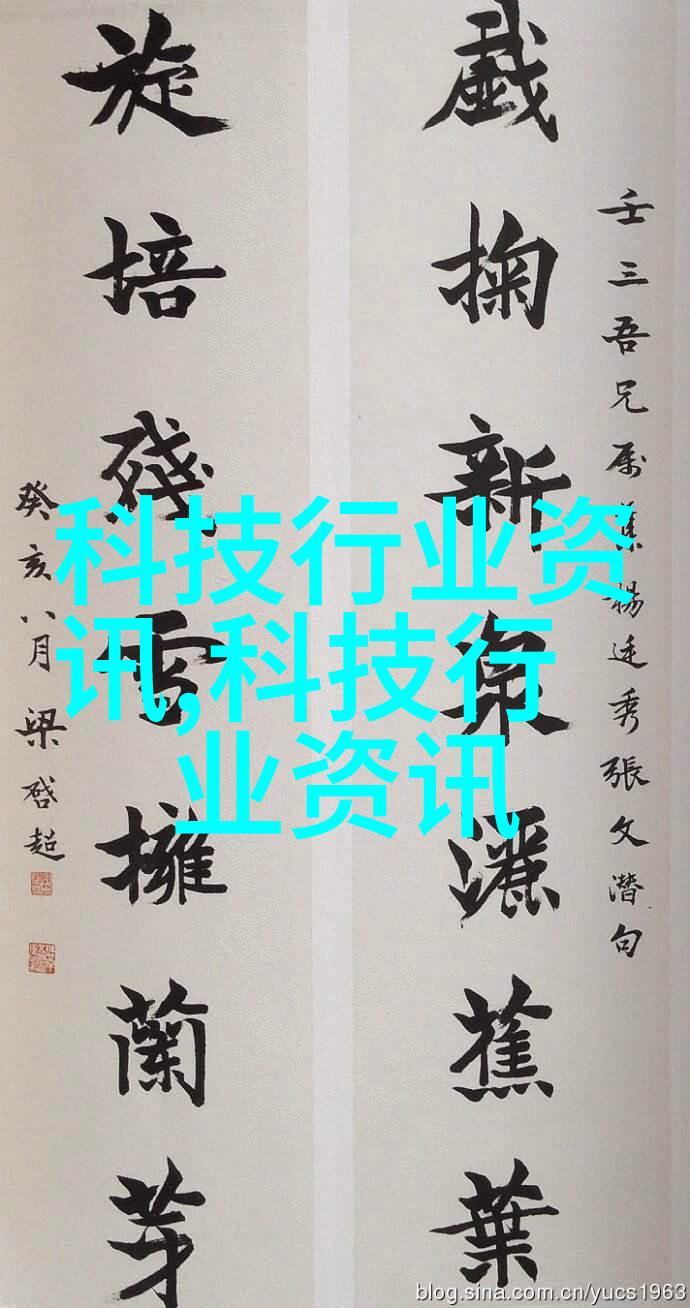 壬三吾兄属集楊廷秀張文潛句
戲掬新泉灑蕉葉
旋培殘雪擁蘭芽
癸亥八月梁啓超
科技行业资
讯,科技行
业资讯
blog.sina.com.cn/yucs1963